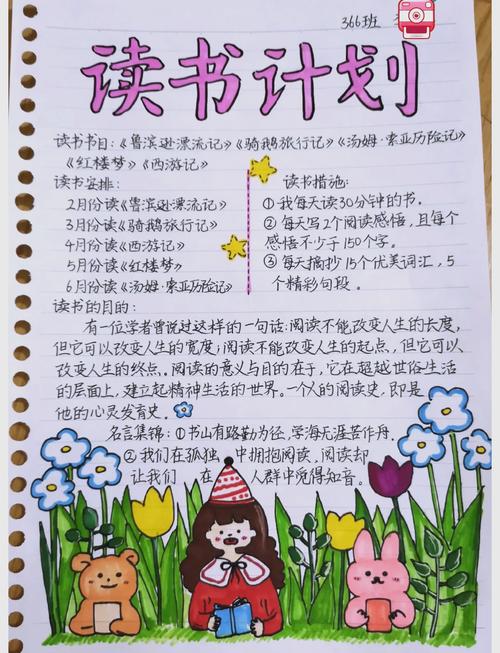 366班
读书计划
读书书目:《鲁滨逊漂流记》《骑鹅旅行记》《汤姆·索亚历险记》
《红楼梦》《西游记》
读书安排:
2月份读《鲁滨逊漂流记》
3月份读《骑鹅旅行记》
4月份读《西游记》
5月份读《红楼梦》
6月份读《汤姆·索亚历险记》
读书措施:
①我每天读30分钟的书。
②每天写2个阅读感悟,且每个
感悟不少于150个字。
③每天摘抄15个优美词汇,5
个精彩句段。
读书的目的:
有一位学者曾说过这样的一句话:阅读不能改变人生的长度,
但它可以改变人生的宽度;阅读不能改变人生的起点,但它可以
改变人生的终点。阅读的意义与目的在于,它在超越世俗生活
的层面上,建立起精神生活的世界。一个人的阅读史,即是
他的心灵发育史。
名言集锦:①书山有路勤为径,学海无涯苦作舟。
②我们在孤独 中拥抱阅读,阅读却
让我们 在 人群中觅得知音。